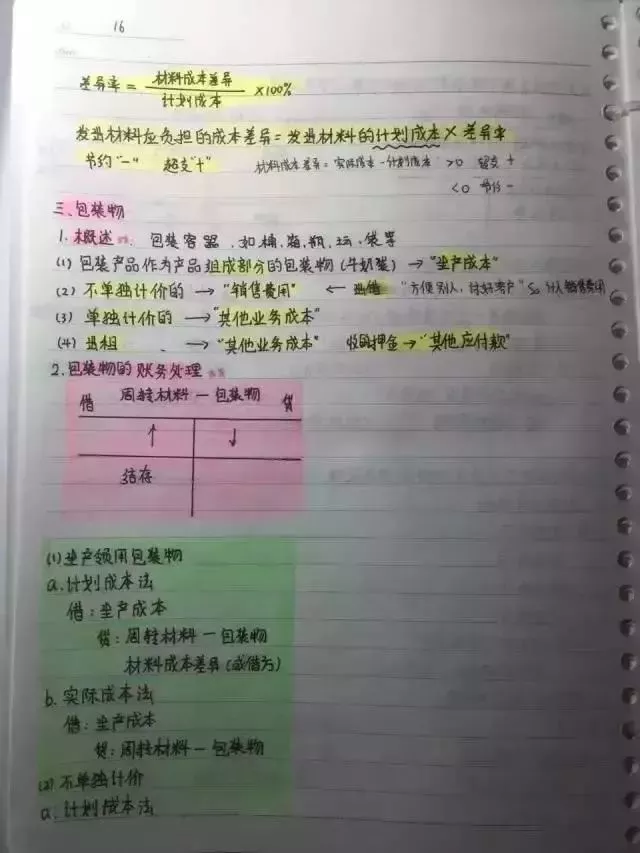 16
差异率 = 材料成本差异 / 计划成本 ×100%
发出材料应负担的成本差异=发出材料的计划成本×差异率
节约"-" 超支"+" 材料成本差异=实际成本-计划成本 >0 超支 +
<0 节约 -
三、包装物
1. 概述 包装容器,如桶,箱,瓶,坛,袋等
(1) 包装产品作为产品组成部分的包装物(牛奶袋) → "生产成本"
(2) 不单独计价的 → "销售费用" ← 出借 "方便别人,体好客户" So 计入销售费用
(3) 单独计价的 → "其他业务成本"
(4) 出租 → "其他业务成本" 收到押金→"其他应付款"
2.包装物的账务处理
借 周转材料—包装物 贷
↑ ↓
结存
(1) 生产领用包装物
a.计划成本法
借:生产成本
贷:周转材料—包装物
材料成本差异(或借方)
b. 实际成本法
借:生产成本
贷:周转材料—包装物
(2) 不单独计价
a. 计划成本法